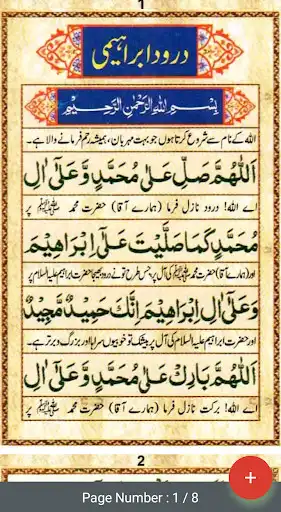 1
درود ابراہیمی
بِسْمِ اللّٰهِ الرَّحْمٰنِ الرَّحِيْمِ
اللہ کے نام سے شروع کرتا ہوں جو بہت مہربان، ہمیشہ رحم فرمانے والا ہے۔
اَللّٰهُمَّ صَلِّ عَلٰی مُحَمَّدٍ وَّعَلٰٓی اٰلِ
اے اللہ! درود نازل فرما (ہمارے آقا) حضرت محمد ﷺ پر
مُحَمَّدٍ كَمَا صَلَّيْتَ عَلٰٓی اِبْرَاهِيْمَ
اور (ہمارے آقا) حضرت محمد ﷺ کی آل پر جس طرح تو نے درود بھیجا حضرت ابراہیم علیہ السلام پر
وَعَلٰٓی اٰلِ اِبْرَاهِيْمَ اِنَّكَ حَمِيْدٌ مَّجِيْدٌ
اور حضرت ابراہیم علیہ السلام کی آل پر بیشک تو خوبیوں سراہا اور بزرگ و برتر ہے۔
اَللّٰهُمَّ بَارِكْ عَلٰی مُحَمَّدٍ وَّعَلٰٓی اٰلِ
اے اللہ! برکت نازل فرما (ہمارے آقا) حضرت محمد ﷺ پر
2
+
Page Number : 1 / 8